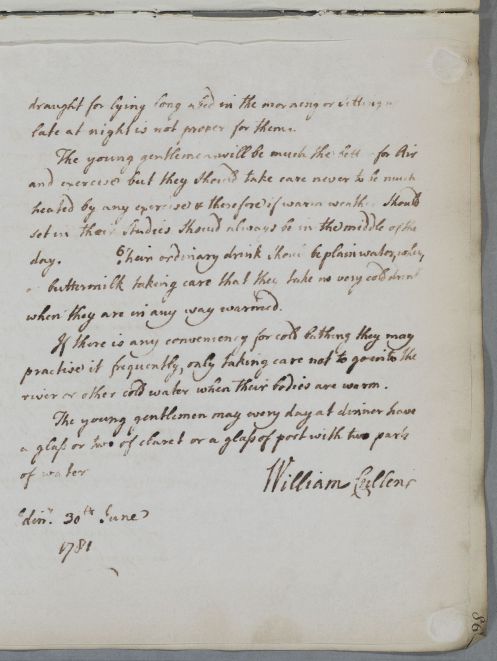 draught for lying long abed in the morning or sitting
late at night is not proper for them.
The young gentlemen will be much the bett for Air
and exercise but they should take care never to be much
heated by any exercise & therefore if warm weather should
set in their studies should always be in the middle of the
day. Their ordinary drink should be plain water, whey,
or buttermilk taking care that they take no very cold drink
when they are in any way warmed.
If there is any conveniency for cold bathing they may
practise it frequently, only taking care not to go into the
river or other cold water when their bodies are warm.
The young gentlemen may every day at dinner have
a glass or two of claret or a glass of port with two parts
of water
William Cullen
Edinr. 30th June
1781
86